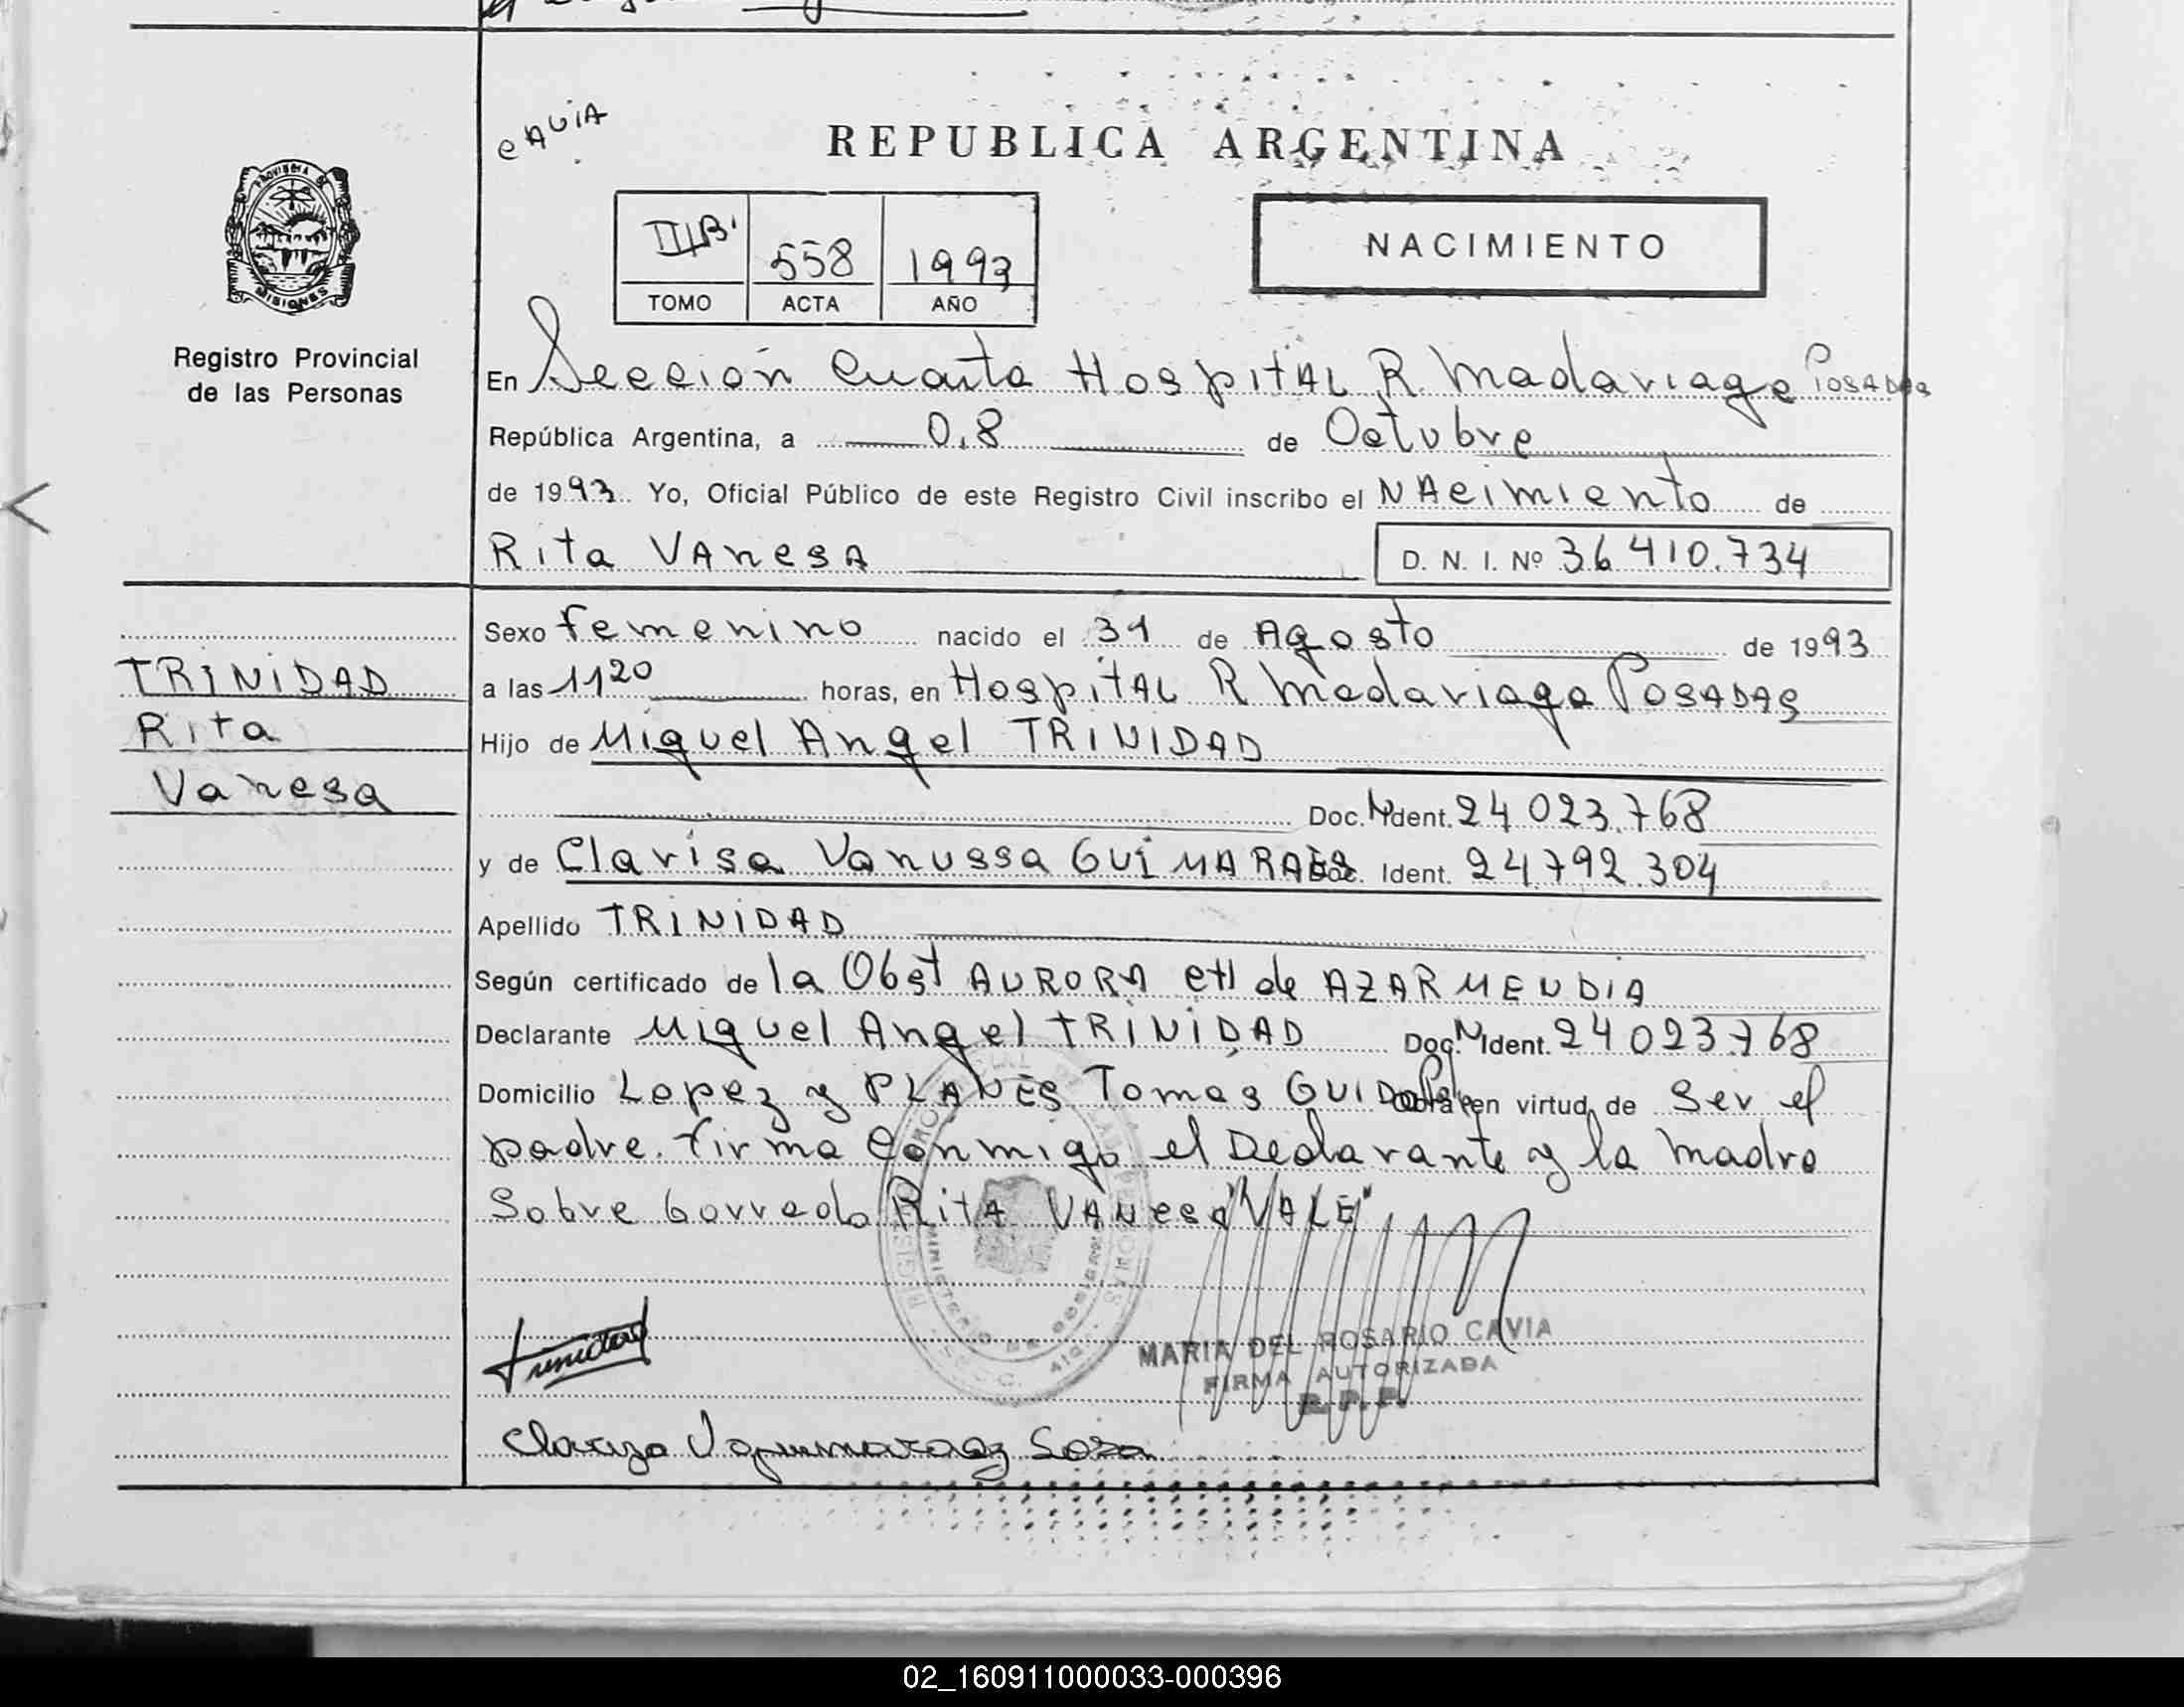 eAUIA
REPUBLICA ARGENTINA
PROVINCIA DE MISIONES
Registro Provincial
de las Personas
II B' 558 1993
TOMO ACTA AÑO
NACIMIENTO
En Sección Cuarta Hospital R. Madariaga Posadas
República Argentina, a 08 de Octubre
de 1993 Yo, Oficial Público de este Registro Civil inscribo el NAcimiento de
Rita VAnesA D. N. I. Nº 36 410.734
Sexo femenino nacido el 31 de Agosto de 1993
a las 11 20 horas, en HospitAL R Madariaga PosADAS
Hijo de Miguel Angel TRINIDAD
Doc. N Ident. 24 023.768
y de Clarisa Vanussa GUIMARAES Doc. Ident. 24.792.304
Apellido TRINIDAD
Según certificado de la Obst AURORA etl de AZARMENDIA
Declarante Miguel Angel TRINIDAD Doc. N Ident. 24 023.768
Domicilio Lopez y PLANES Tomas GUIDO Pdas Obra en virtud de Ser el
padre. firma Conmigo el Declarante y la madre
Sobre borrado Rita VANesa "VALE"
TRINIDAD
Rita
Vanesa
Trinidad
MARIA DEL ROSARIO CAVIA
FIRMA AUTORIZADA
R.P.P.
MINISTERIO DE GOBIERNO
Clariza V guimaraez Sosa
02_160911000033-000396